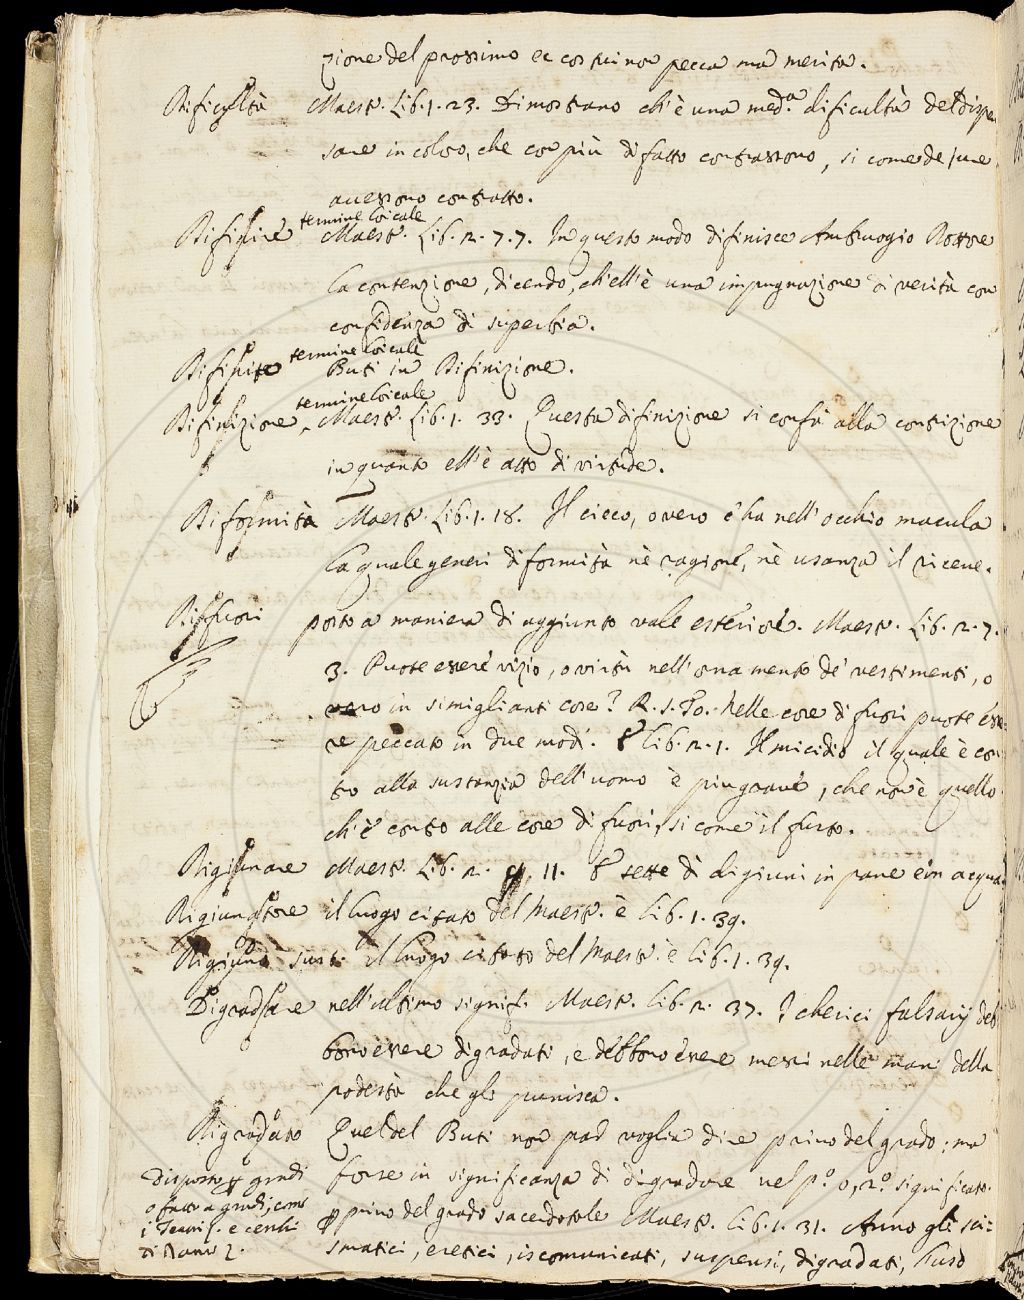 zione del prossimo ec costui non pecca ma merita.
Dificultà Maest. Lib. 1. 23. Dimostrano ch'è una med.ª dificultà del dispen
sare in coloro, che con più difatto contrassono, si come de jure
avessono contratto.
Difinire termine loicale Maest. Lib. 2. 7. 7. In questo modo difinisce Ambruogio Dottore
la contenzione, dicendo, ch'ell'è una impugnazione di verità con
confidenza di superbia.
Difinito termine loicale Buti in Difinizione.
Difinizione termine loicale Maest. Lib. 1. 33. Questa difinizione si confà alla contrizione
in quanto ell'è atto di virtude.
Diformità Maest. Lib. 1. 18. Il cieco, overo c'ha nell'occhio macula
la quale generi diformità nè ragione, nè usanza il riceve.
Diffuori posto a maniera di aggiunto vale esteriore. Maest. Lib. 2. 7.
3. Puote essere vizio, o virtù nell'ornamento de' vestimenti, o
vero in simiglianti cose? R. s. To. Nelle cose di fuori puote esse
re peccato in due modi. E Lib. 2. 1. Il micidio il quale è con
tro alla sustanzia dell'uomo è piugrave, che non è quello
ch'è contro alle cose di fuori, si come il furto.
Digiunare Maest. Lib. 2. 11. E sette dì digiuni in pane e in acqua
Digiunatore il luogo citato del Maest. è Lib. 1. 39.
Digiuno sust. il luogo citato del Maest. è Lib. 1. 39.
Digradare nell'ultimo signif. Maest. Lib. 2. 37. I cherici falsarij deb
bono essere digradati, e debbono essere messi nelle mani della
podestà che gli punisca.
Digradato Quel del Buti non par voglia dire privo del grado: ma
disposto p gradi forse in significanza di digradare nel p.º o, 2.º significato.
o fatto a gradi, come p privo del grado sacerdotale Maest. Lib. 1. 31. Anno gli sci=
i Teatri smatici, eretici, iscomunicati, suspensi, digradati, l'uso